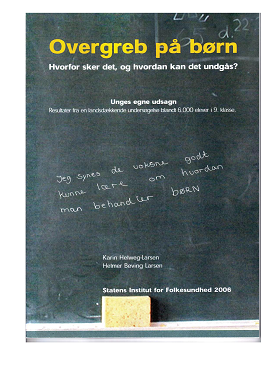 d. 22
Overgreb på børn
Hvorfor sker det, og hvordan kan det undgås?
Unges egne udsagn
Resultater fra en landsdækkende undersøgelse blandt 6.000 elever i 9. klasse.
Jeg synes de voksne godt
kunne lære om hvordan
man behandler BØRN
Karin Helweg-Larsen
Helmer Bøving Larsen
Statens Institut for Folkesundhed 2006